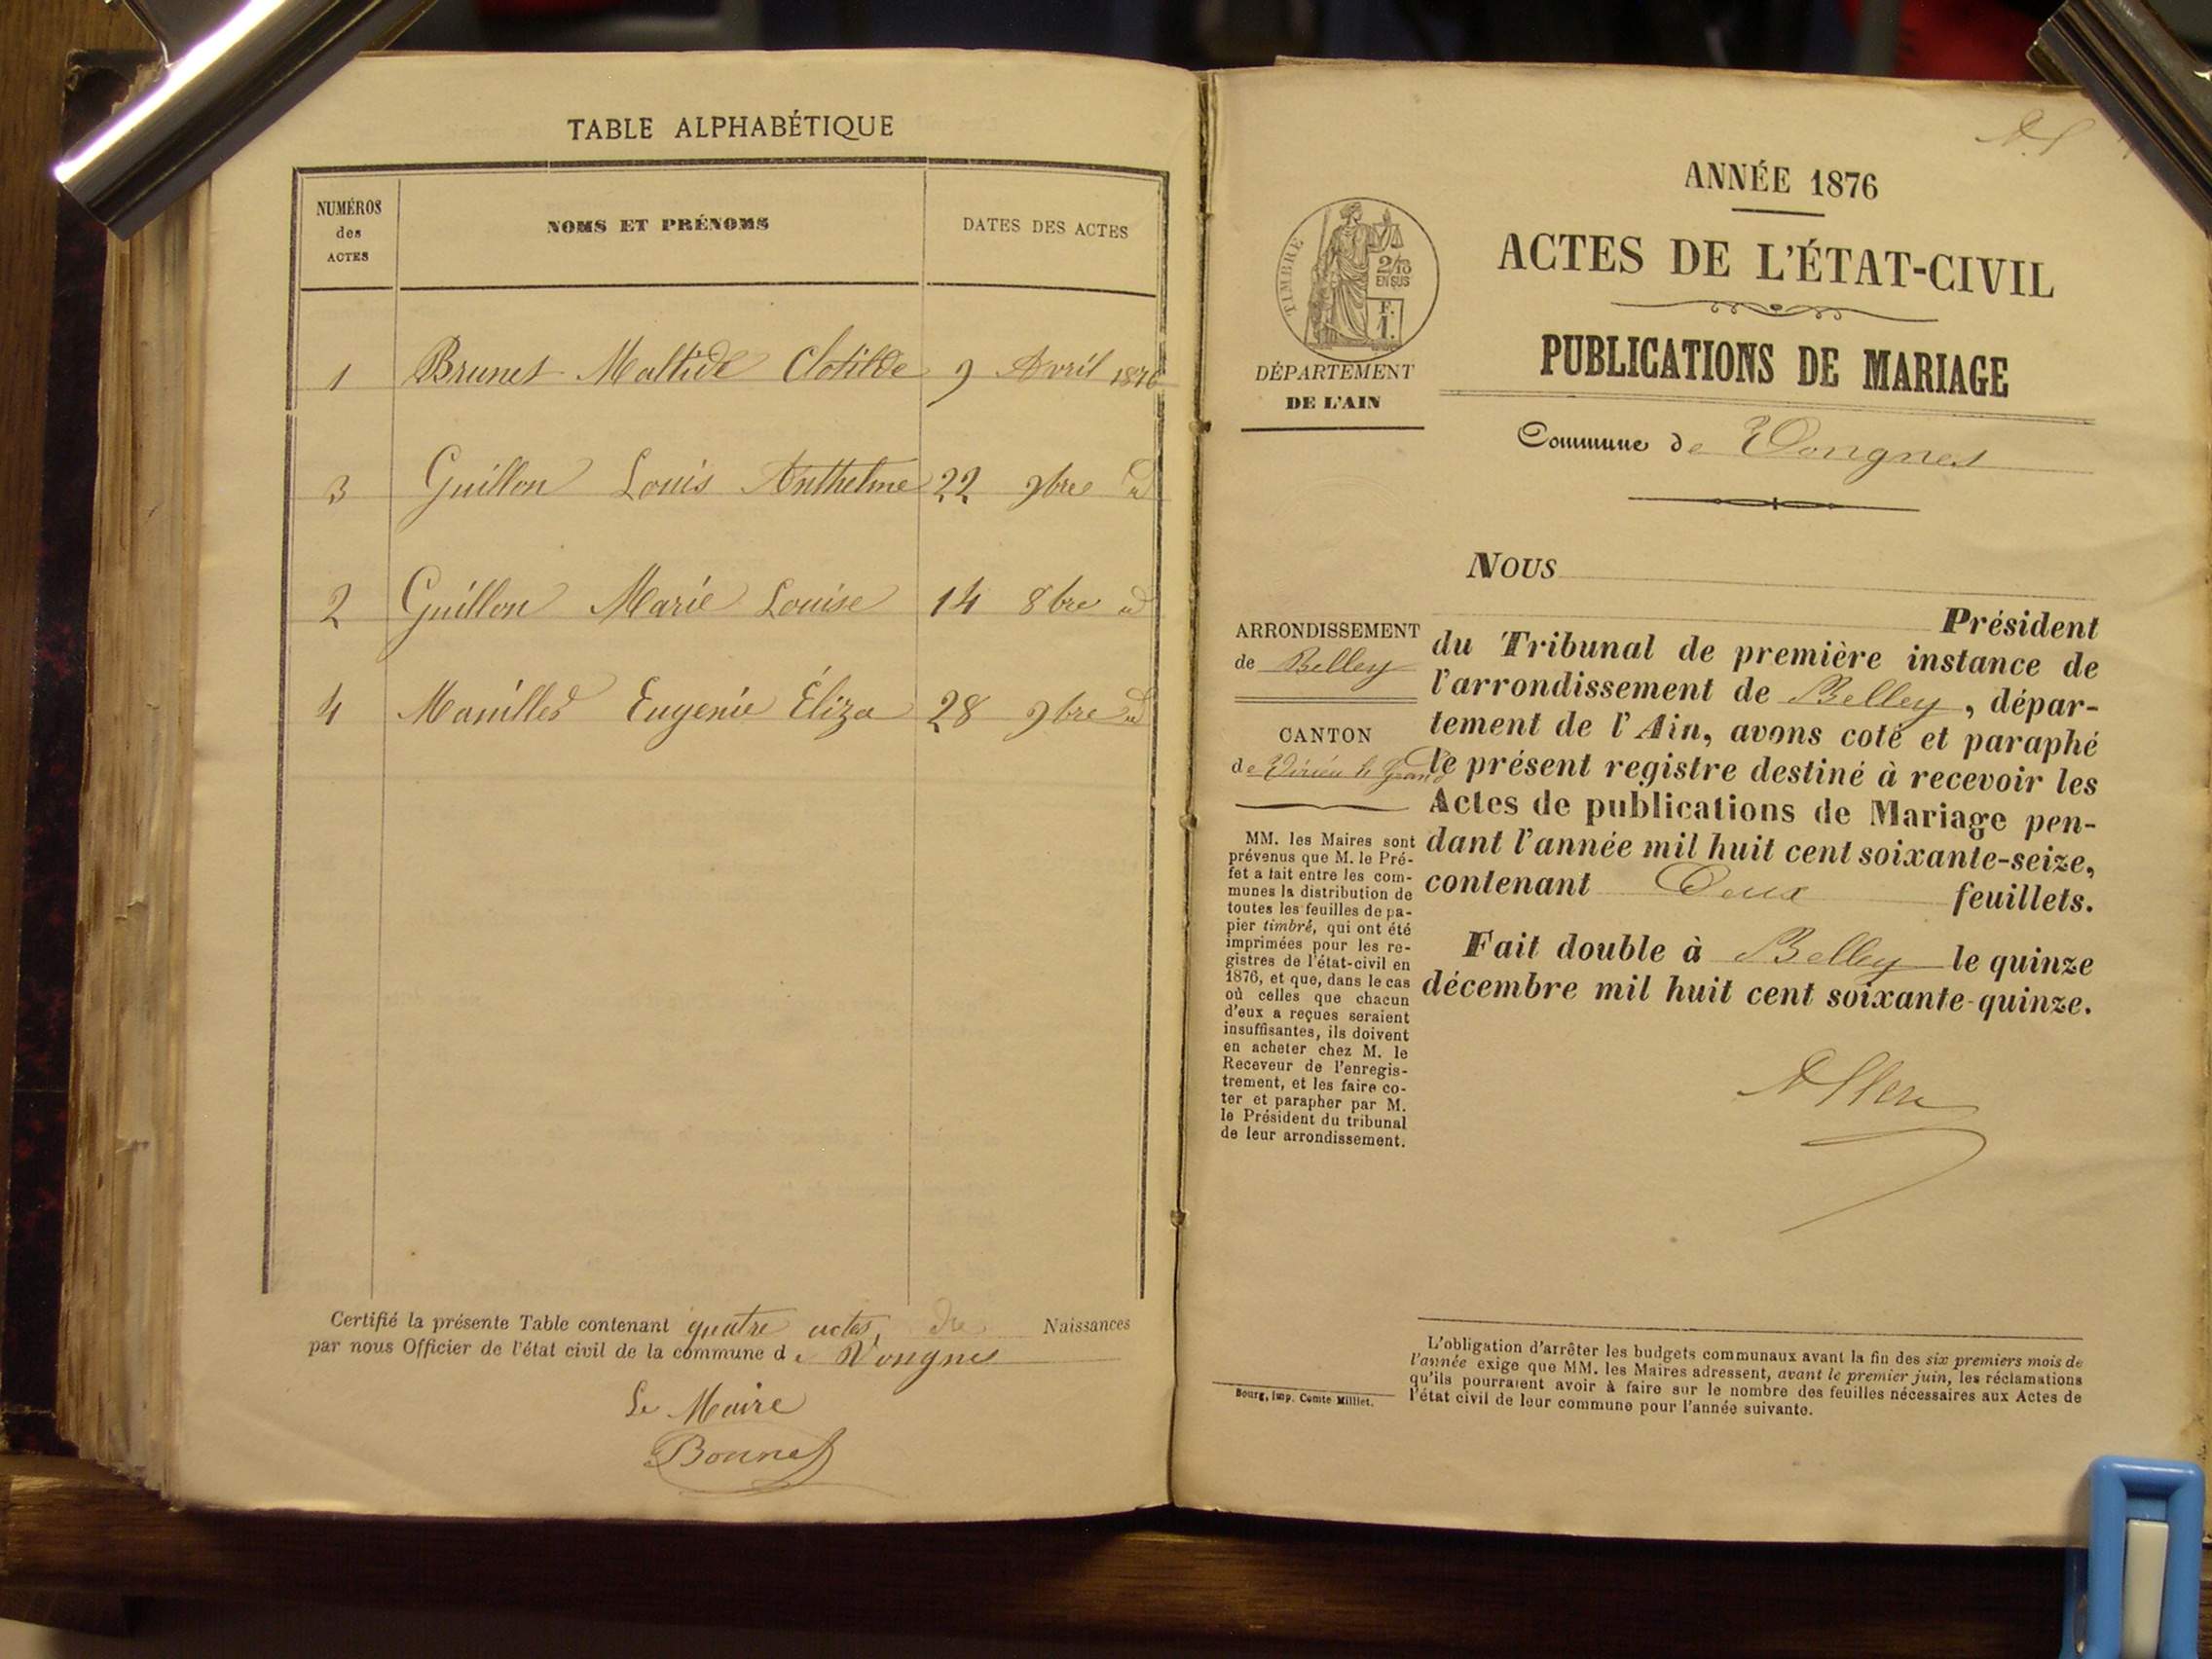 TABLE ALPHABÉTIQUE
NUMÉROS
des
ACTES
NOMS ET PRÉNOMS
DATES DES ACTES
1 Brunet Maltide Clotilde 9 Avril 1876
3 Guillon Louis Anthelme 22 9bre id
2 Guillon Marie Louise 14 8bre id
4 Manilles Eugenie Éliza 28 9bre id
Certifié la présente Table contenant quatre actes, de Naissances
par nous Officier de l'état civil de la commune de Vongnes
Le Maire
Bonnet
ANNÉE 1876
ACTES DE L'ÉTAT-CIVIL
PUBLICATIONS DE MARIAGE
Commune de Vongnes
TIMBRE
2/10
EN SUS
F.
1.
DÉPARTEMENT
DE L'AIN
ARRONDISSEMENT
de Belley
CANTON
de Virieu le Grand
MM. les Maires sont
prévenus que M. le Pré-
fet a fait entre les com-
munes la distribution de
toutes les feuilles de pa-
pier timbré, qui ont été
imprimées pour les re-
gistres de l'état-civil en
1876, et que, dans le cas
où celles que chacun
d'eux a reçues seraient
insuffisantes, ils doivent
en acheter chez M. le
Receveur de l'enregis-
trement, et les faire co-
ter et parapher par M.
le Président du tribunal
de leur arrondissement.
NOUS
Président
du Tribunal de première instance de
l'arrondissement de Belley, dépar-
tement de l'Ain, avons coté et paraphé
le présent registre destiné à recevoir les
Actes de publications de Mariage pen-
dant l'année mil huit cent soixante-seize,
contenant Deux feuillets.
Fait double à Belley le quinze
décembre mil huit cent soixante-quinze.
L'obligation d'arrêter les budgets communaux avant la fin des six premiers mois de
l'année exige que MM. les Maires adressent, avant le premier juin, les réclamations
qu'ils pourraient avoir à faire sur le nombre des feuilles nécessaires aux Actes de
l'état civil de leur commune pour l'année suivante.
Bourg, Imp. Comte Milliet.